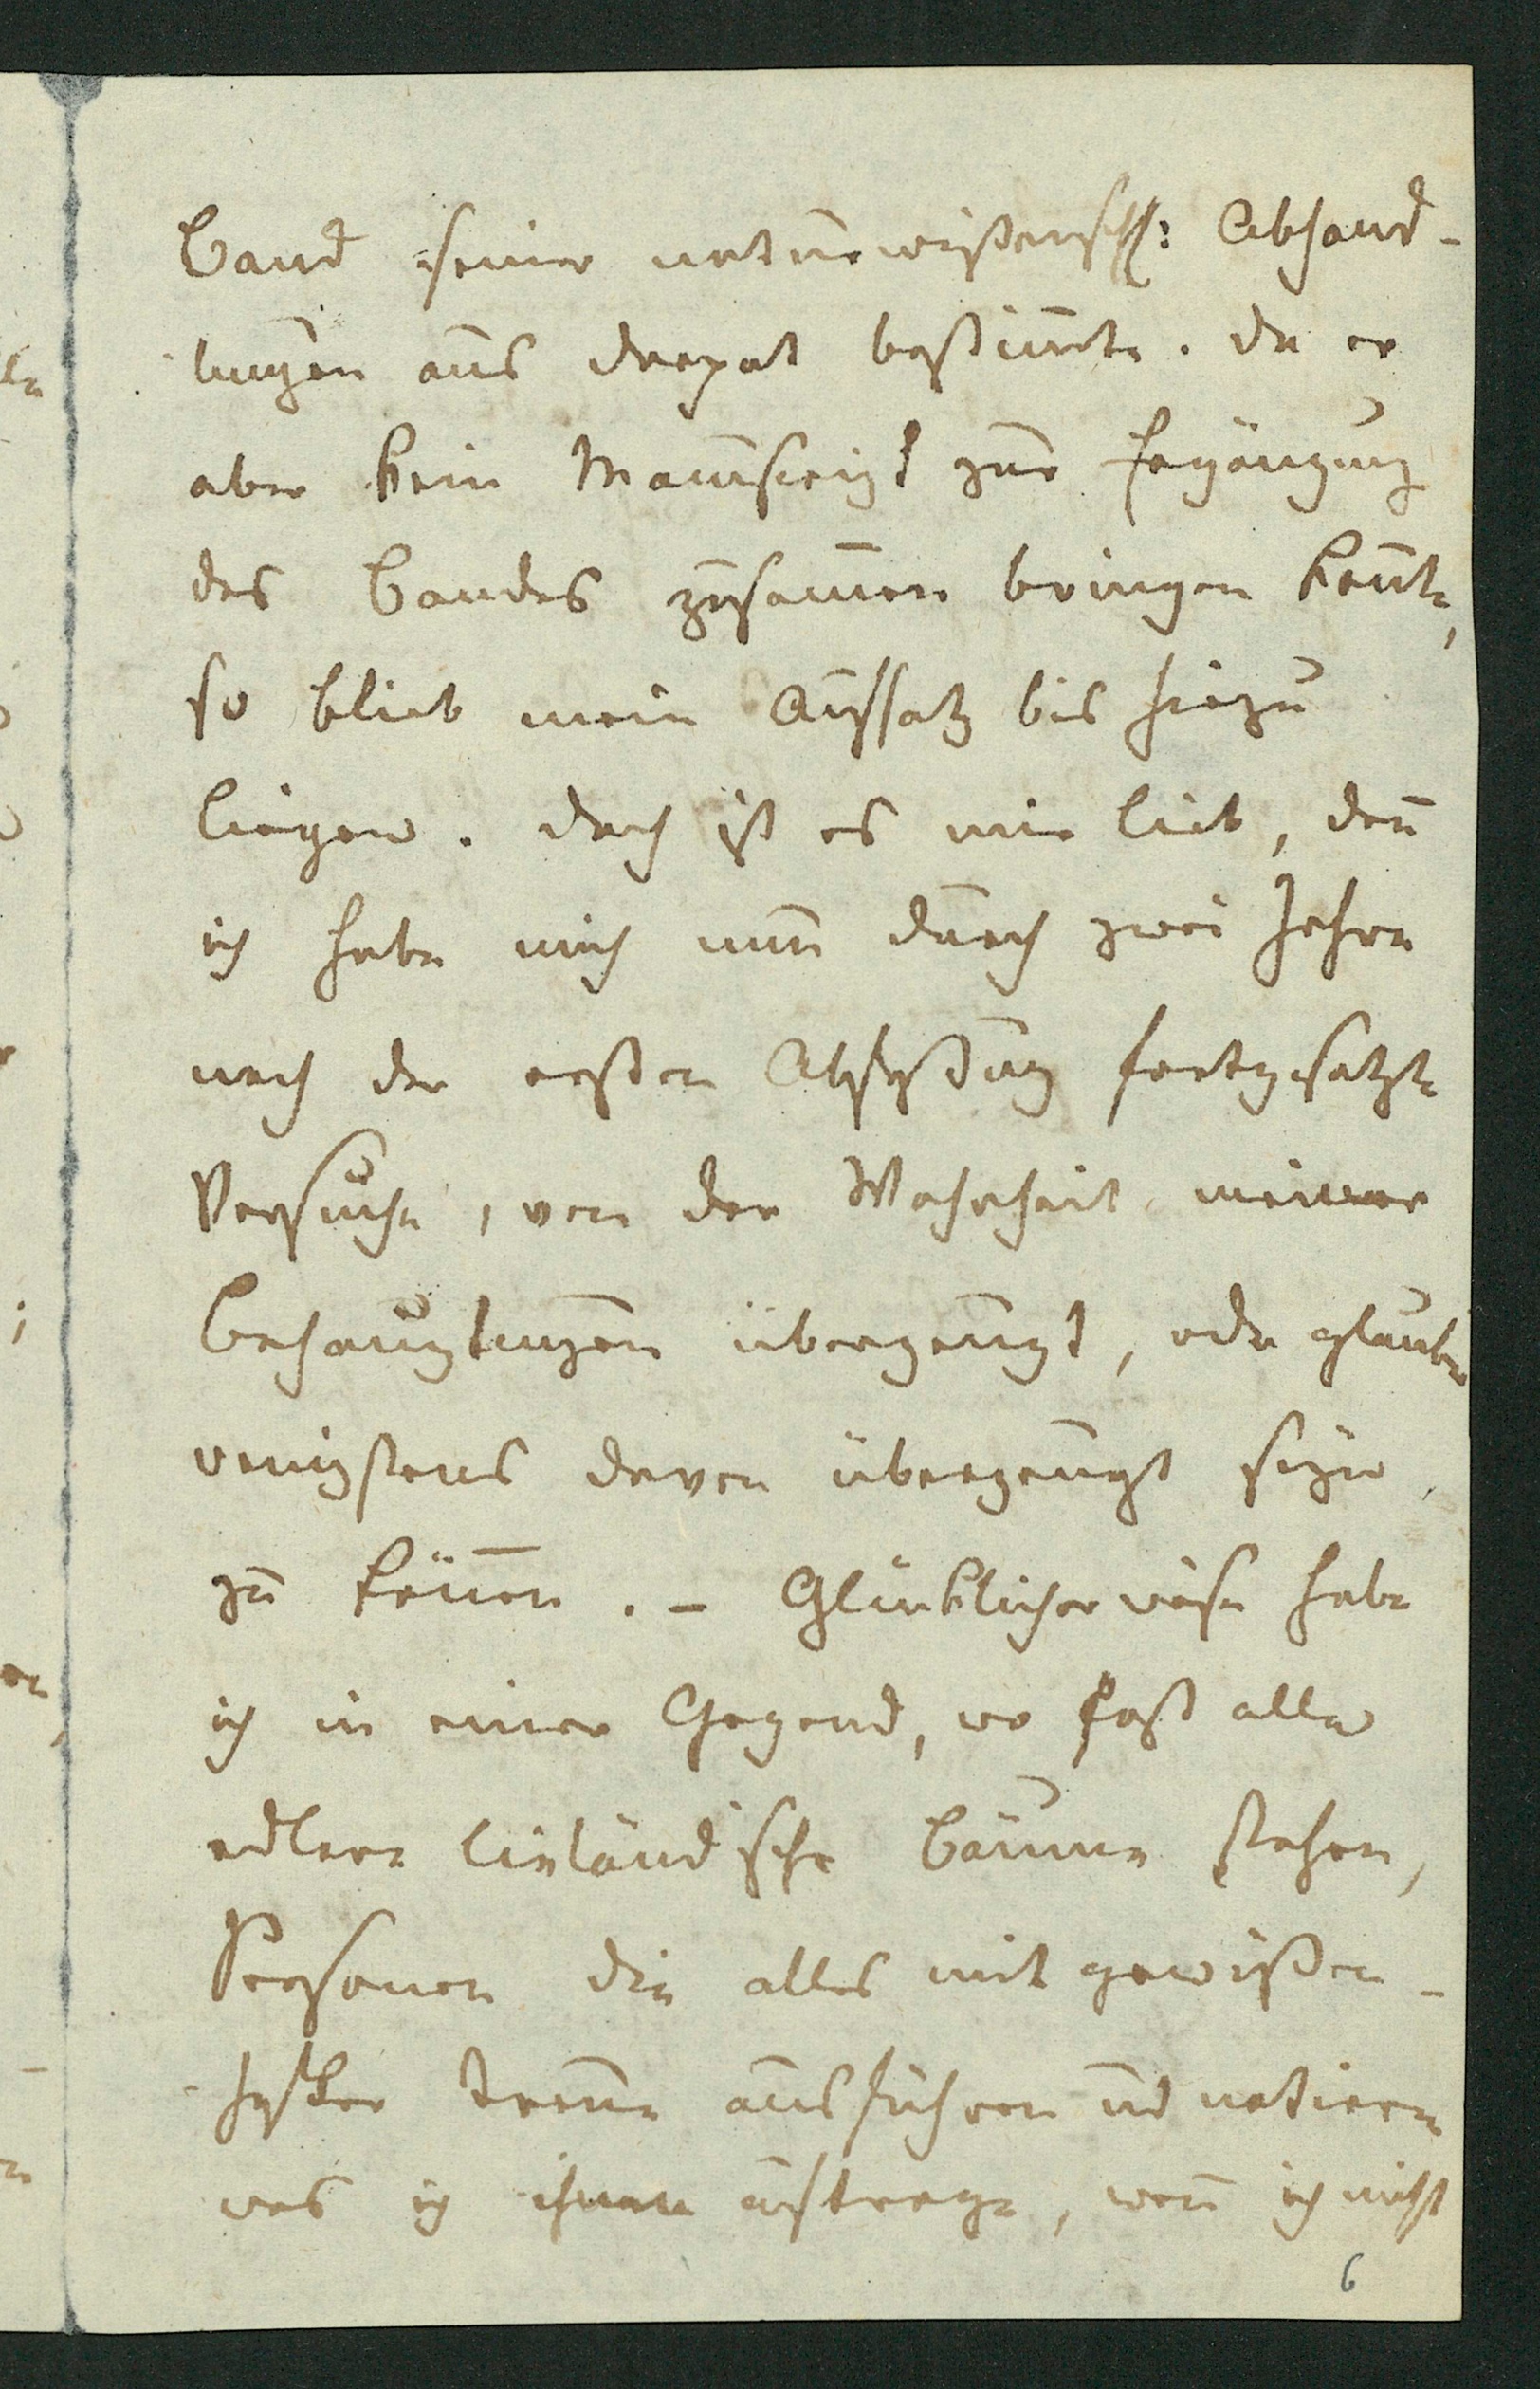 Band seiner naturwißenschftl: Abhand-
lungen aus Dorpat bestim̄te. Da er
aber kein Manuscript zur Ergänzung
des Bandes zusam̄en bringen kon̄te,
so blieb mein Aufsatz bis hiezu
liegen. Doch ist es mir lieb, den̄
ich habe mich nun durch zwei Jahre
nach der ersten Abfaßung fortgesetzte
Versuche, von der Wahrheit meiner
Behauptungen überzeugt, oder glaube
wenigstens davon überzeugt seyn
zu kön̄en. – Glücklicherweise habe
ich in einer Gegend, wo fast alle
edlere livländische Bäume stehen,
Personen die alles mit gewißen-
hafter Treue ausführen und notiren
was ich ihnen auftrage, wen̄ ich nicht
6